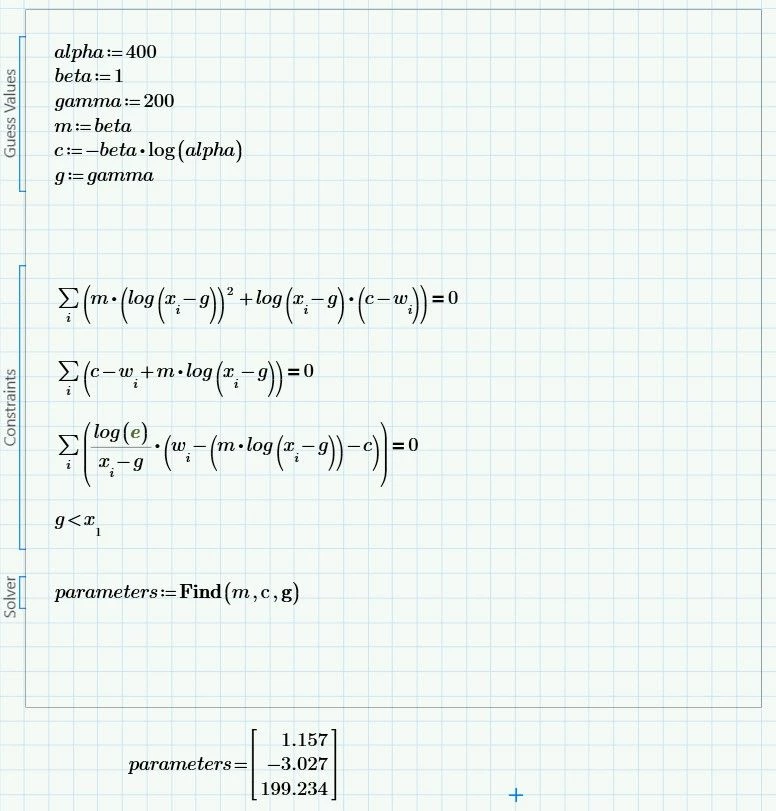 Guess Values
alpha:=400
beta:=1
gamma:=200
m:=beta
c:=−beta•log(alpha)
g:=gamma
Constraints
∑ᵢ (m•(log(xᵢ−g))² +log(xᵢ−g)•(c−wᵢ))=0
∑ᵢ (c−wᵢ+m•log(xᵢ−g))=0
∑ᵢ (log(e)/(xᵢ−g)•(wᵢ−(m•log(xᵢ−g))−c))=0
g<x₁
Solver
parameters:=Find(m,c,g)
parameters=[1.157
−3.027
199.234]